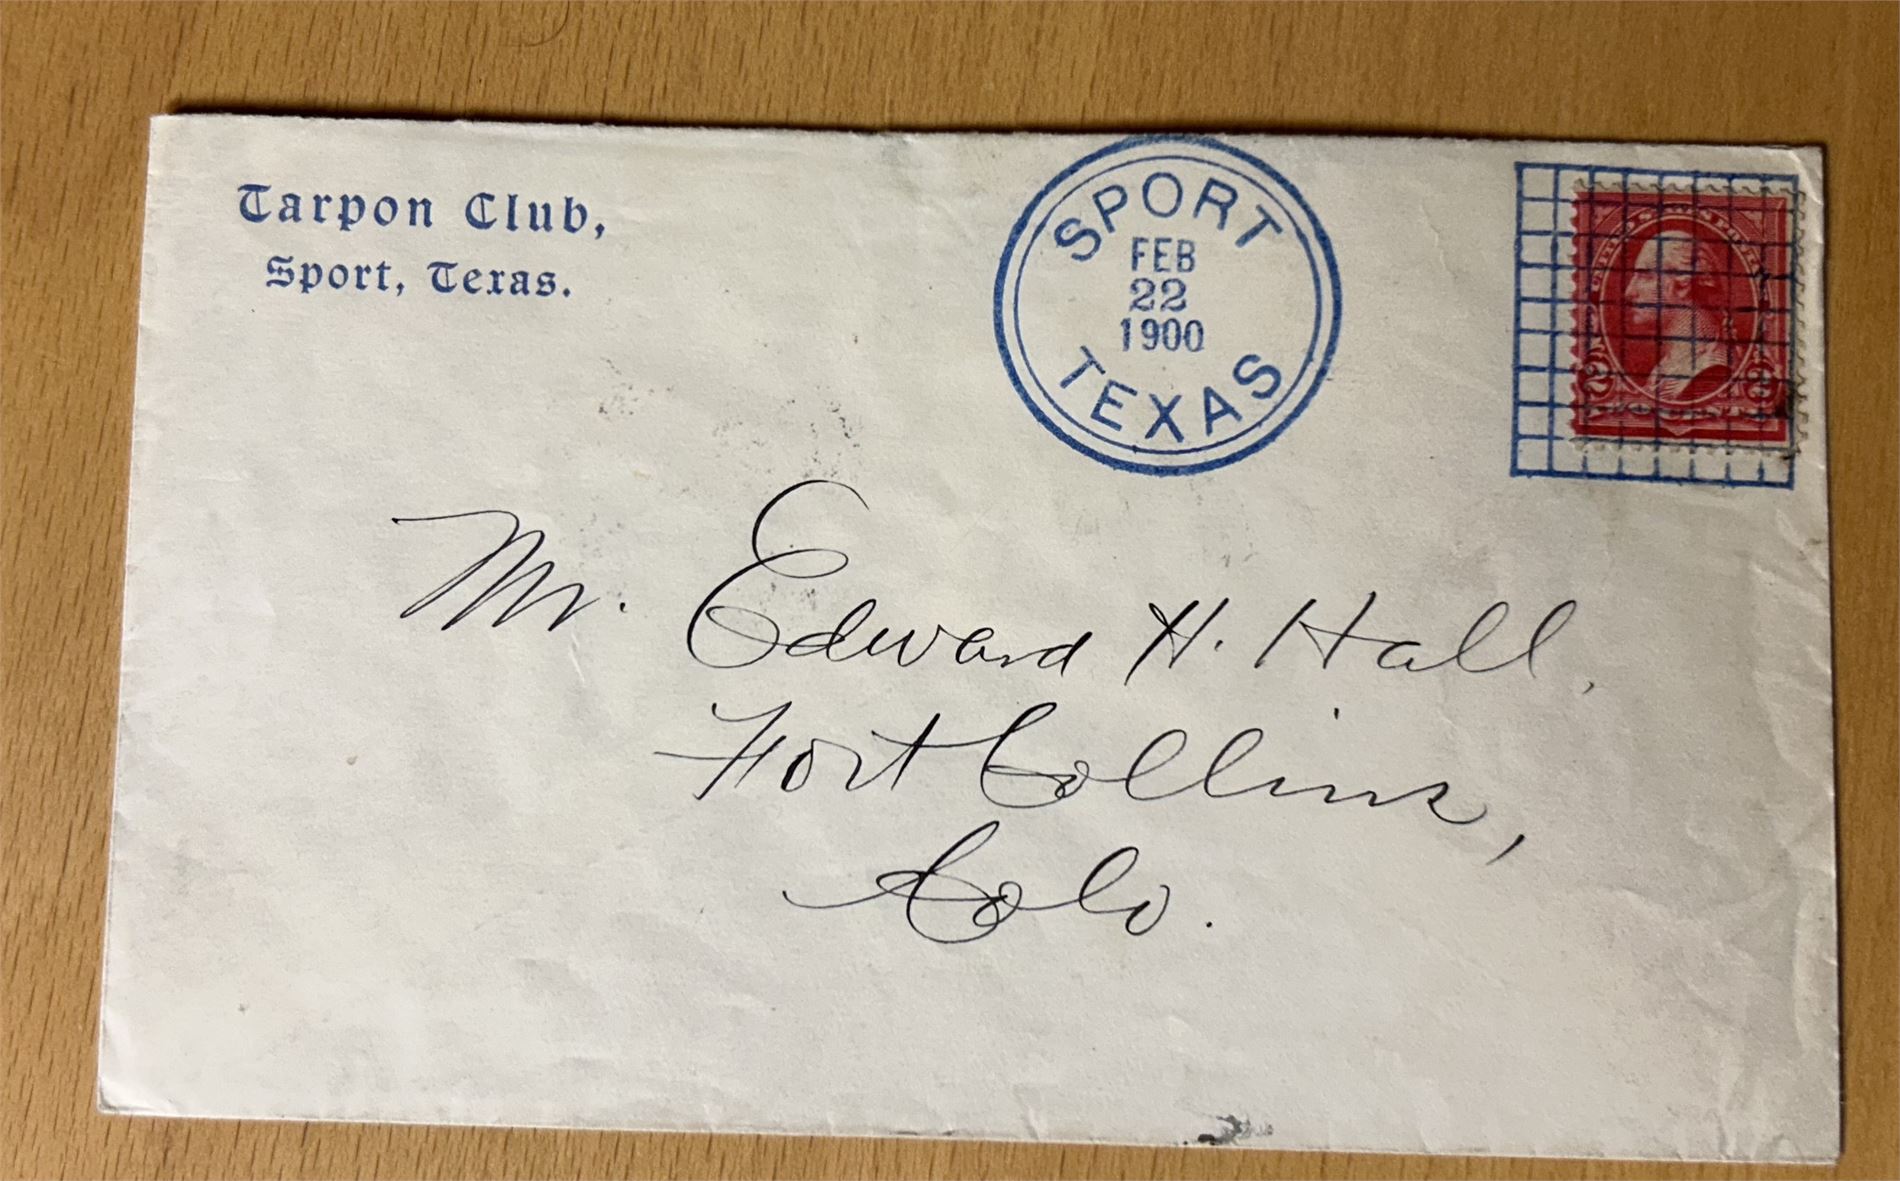 Tarpon Club,
Sport, Texas.
SPORT
FEB
22
1900
TEXAS
2 2
Mr. Edward H. Hall,
Fort Collins,
Colo.